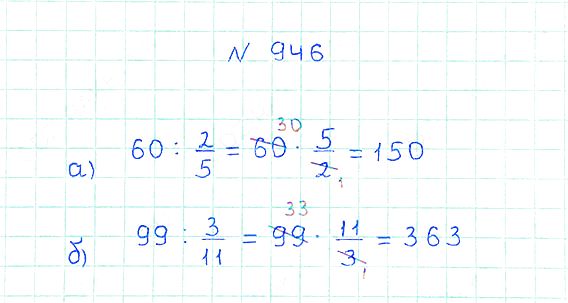 N 946
а) 60 : 2/5 = 60 30 · 5/2 1 = 150
б) 99 : 3/11 = 99 33 · 11/3 1 = 363